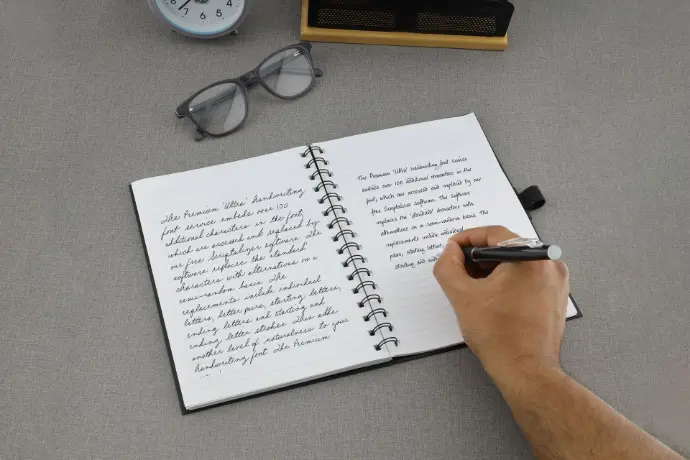 The Premium 'Ultra' handwriting
font service embeds over 100
additional characters in the font,
which are accessed and replaced by
our free Scriptalizer software. The
software replaces the 'standard'
characters with alternatives in a
semi-random basis. The
replacements include individual
letters, letter pairs, starting letters,
ending letters and starting and
ending letter strokes. This adds
another level of naturalness to your
handwriting font. The Premium
The Premium 'Ultra' handwriting font service
embeds over 100 additional characters in the
font, which are accessed and replaced by our
free Scriptalizer software. The software
replaces the 'standard' characters with
alternatives in a semi-random basis. The
replacements include individual
pairs, starting letters,
starting and
7
6
5